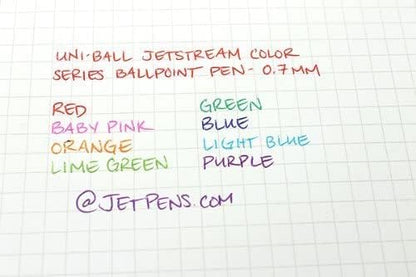 UNI-BALL JETSTREAM COLOR
SERIES BALLPOINT PEN - 0.7MM
RED
BABY PINK
ORANGE
LIME GREEN
GREEN
BLUE
LIGHT BLUE
PURPLE
@JETPENS.COM